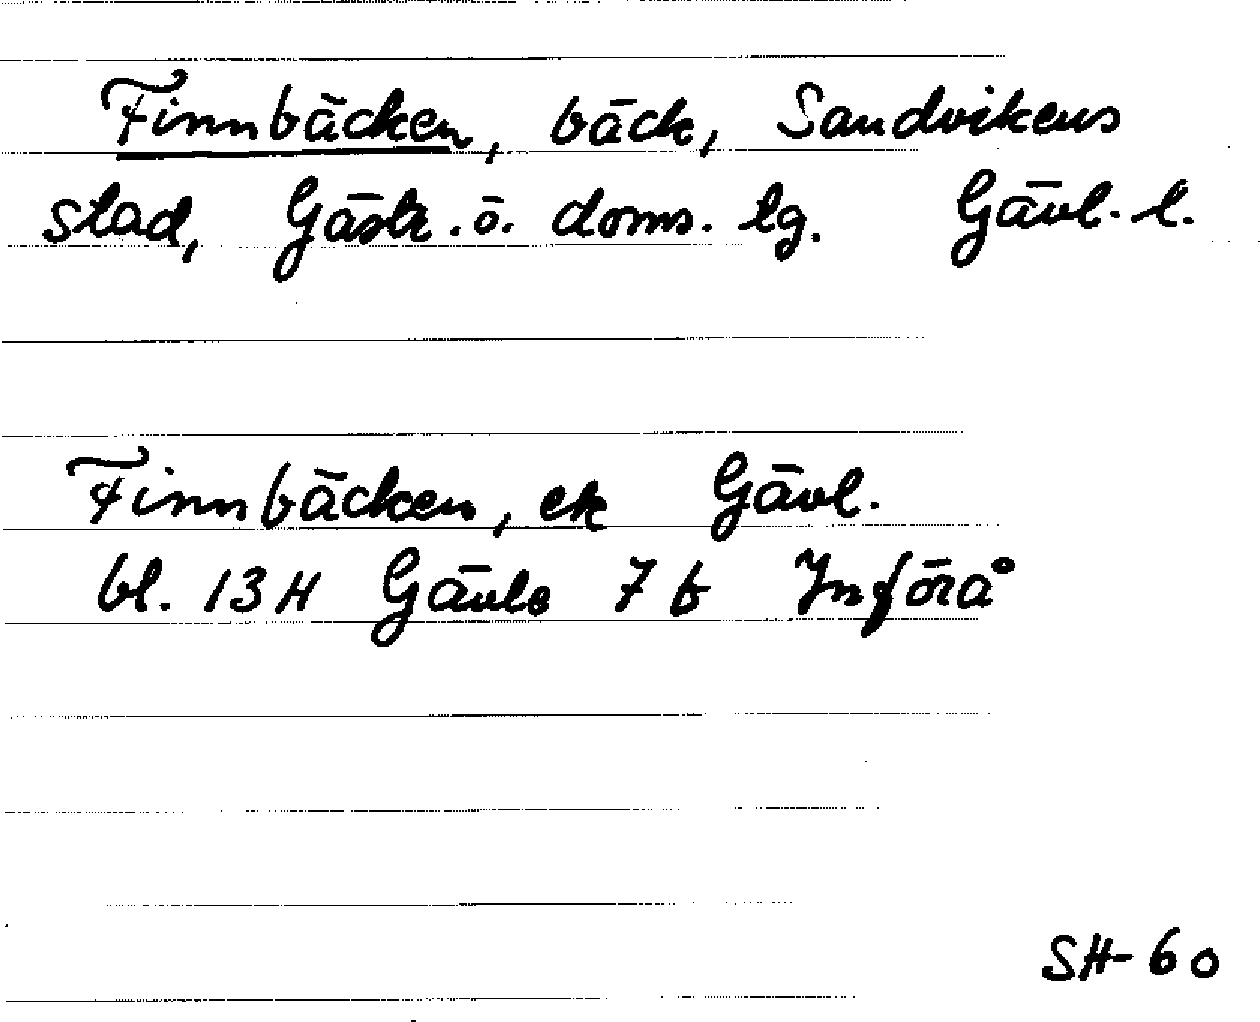 Finnbäcken, bäck, Sandvikens
stad, Gästr. ö. doms. lg. Gävl. l.
Finnbäcken, ek Gävl.
bl. 13 H Gävle 7 b Införå
SH-60